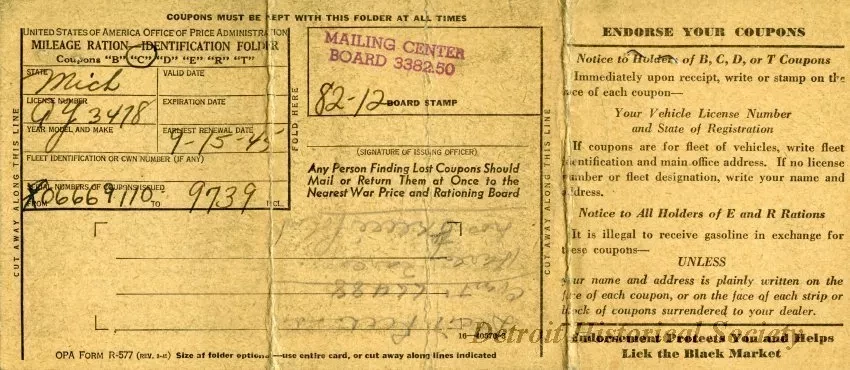 COUPONS MUST BE KEPT WITH THIS FOLDER AT ALL TIMES
UNITED STATES OF AMERICA OFFICE OF PRICE ADMINISTRATION
MILEAGE RATION—IDENTIFICATION FOLDER
Coupons "B" "C" "D" "E" "R" "T"
STATE
Mich
VALID DATE
LICENSE NUMBER
GJ 3478
EXPIRATION DATE
YEAR MODEL AND MAKE
EARLIEST RENEWAL DATE
9-15-45
FLEET IDENTIFICATION OR CWN NUMBER (IF ANY)
SERIAL NUMBERS OF COUPONS ISSUED
FROM 06669110 TO 9739 INCL.
CUT AWAY ALONG THIS LINE
FOLD HERE
MAILING CENTER
BOARD 3382.50
82-12 BOARD STAMP
(SIGNATURE OF ISSUING OFFICER)
Any Person Finding Lost Coupons Should
Mail or Return Them at Once to the
Nearest War Price and Rationing Board
CUT AWAY ALONG THIS LINE
OPA FORM R-577 Size of folder optional—use entire card, or cut away along lines indicated
ENDORSE YOUR COUPONS
Notice to Holders of B, C, D, or T Coupons
Immediately upon receipt, write or stamp on the
face of each coupon—
Your Vehicle License Number
and State of Registration
If coupons are for fleet of vehicles, write fleet
identification and main office address. If no license
number or fleet designation, write your name and
address.
Notice to All Holders of E and R Rations
It is illegal to receive gasoline in exchange for
these coupons—
UNLESS
your name and address is plainly written on the
face of each coupon, or on the face of each strip or
block of coupons surrendered to your dealer.
Detroit Historical Society
Endorsement Protects You and Helps
Lick the Black Market